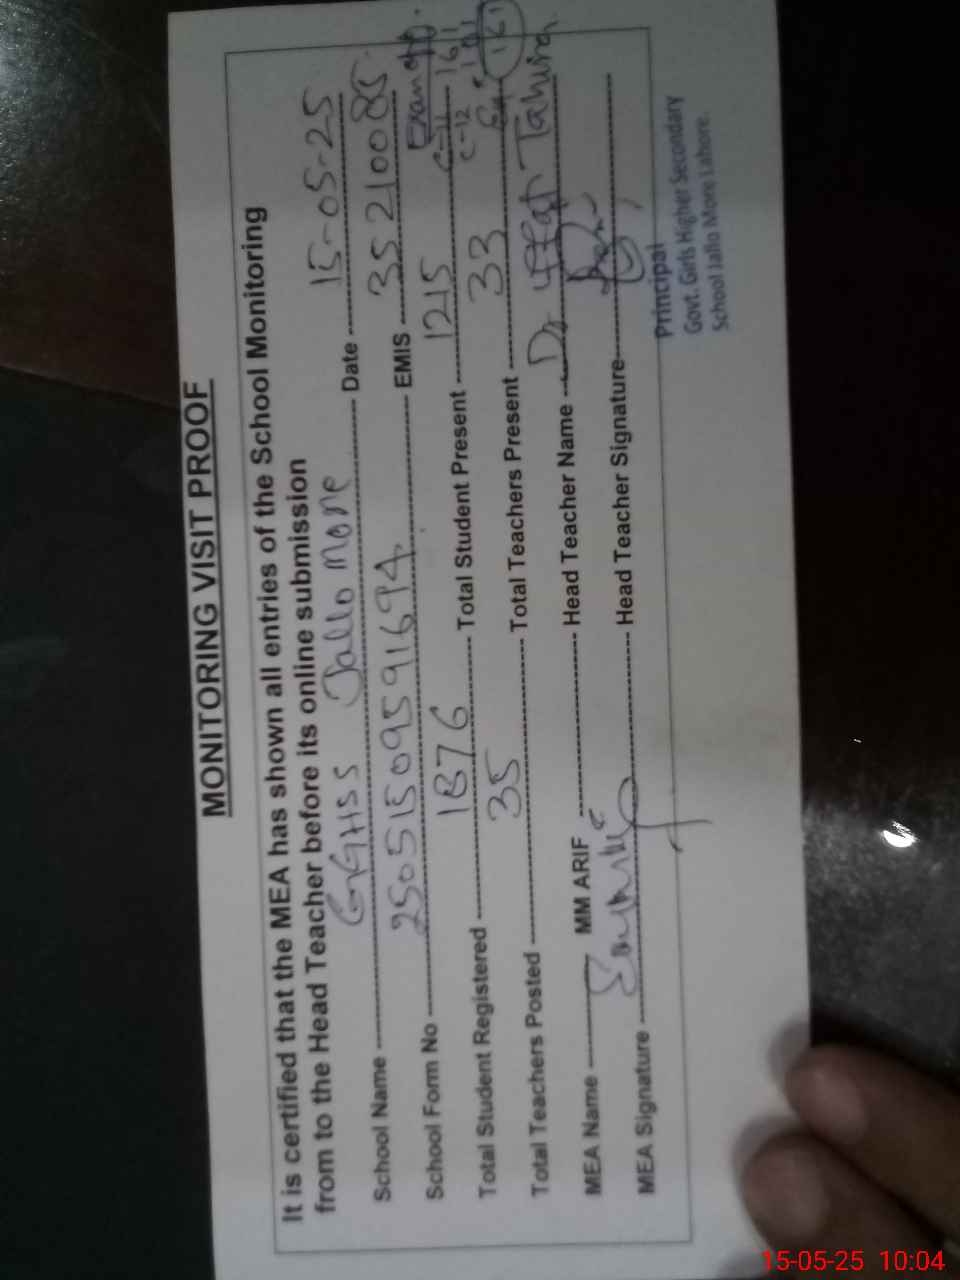 MONITORING VISIT PROOF
It is certified that the MEA has shown all entries of the School Monitoring
from to the Head Teacher before its online submission
School Name GGHSS Jallo More Date 15-05-25
School Form No 25051509591694 EMIS 35210085
Total Student Registered 1876 Total Student Present 1215
Exam
C-11 161
C-12 101
Total Teachers Posted 35 Total Teachers Present 33
MEA Name MM ARIF Head Teacher Name Dr Iffat Tahira
MEA Signature Head Teacher Signature
Principal
Govt. Girls Higher Secondary
School Jallo More Lahore.
15-05-25 10:04